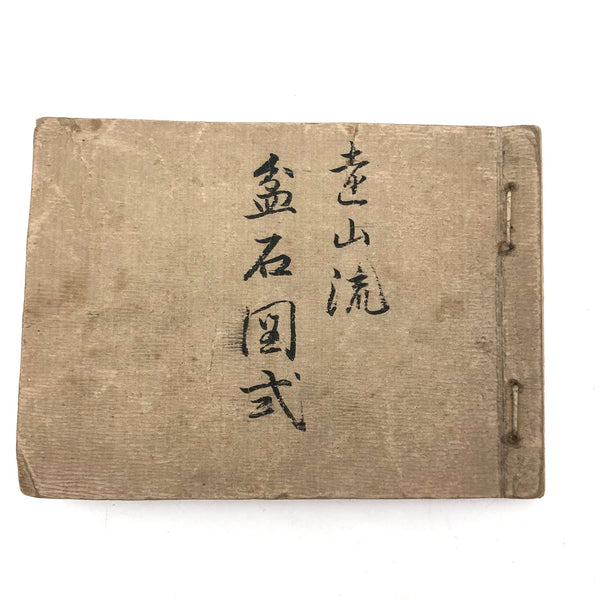 遠山流
盆石図式